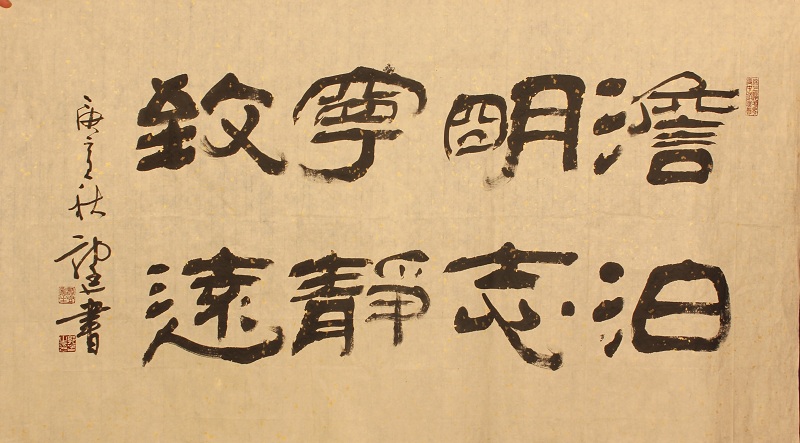 澹泊
明志
寧靜
致遠
庚寅秋建書